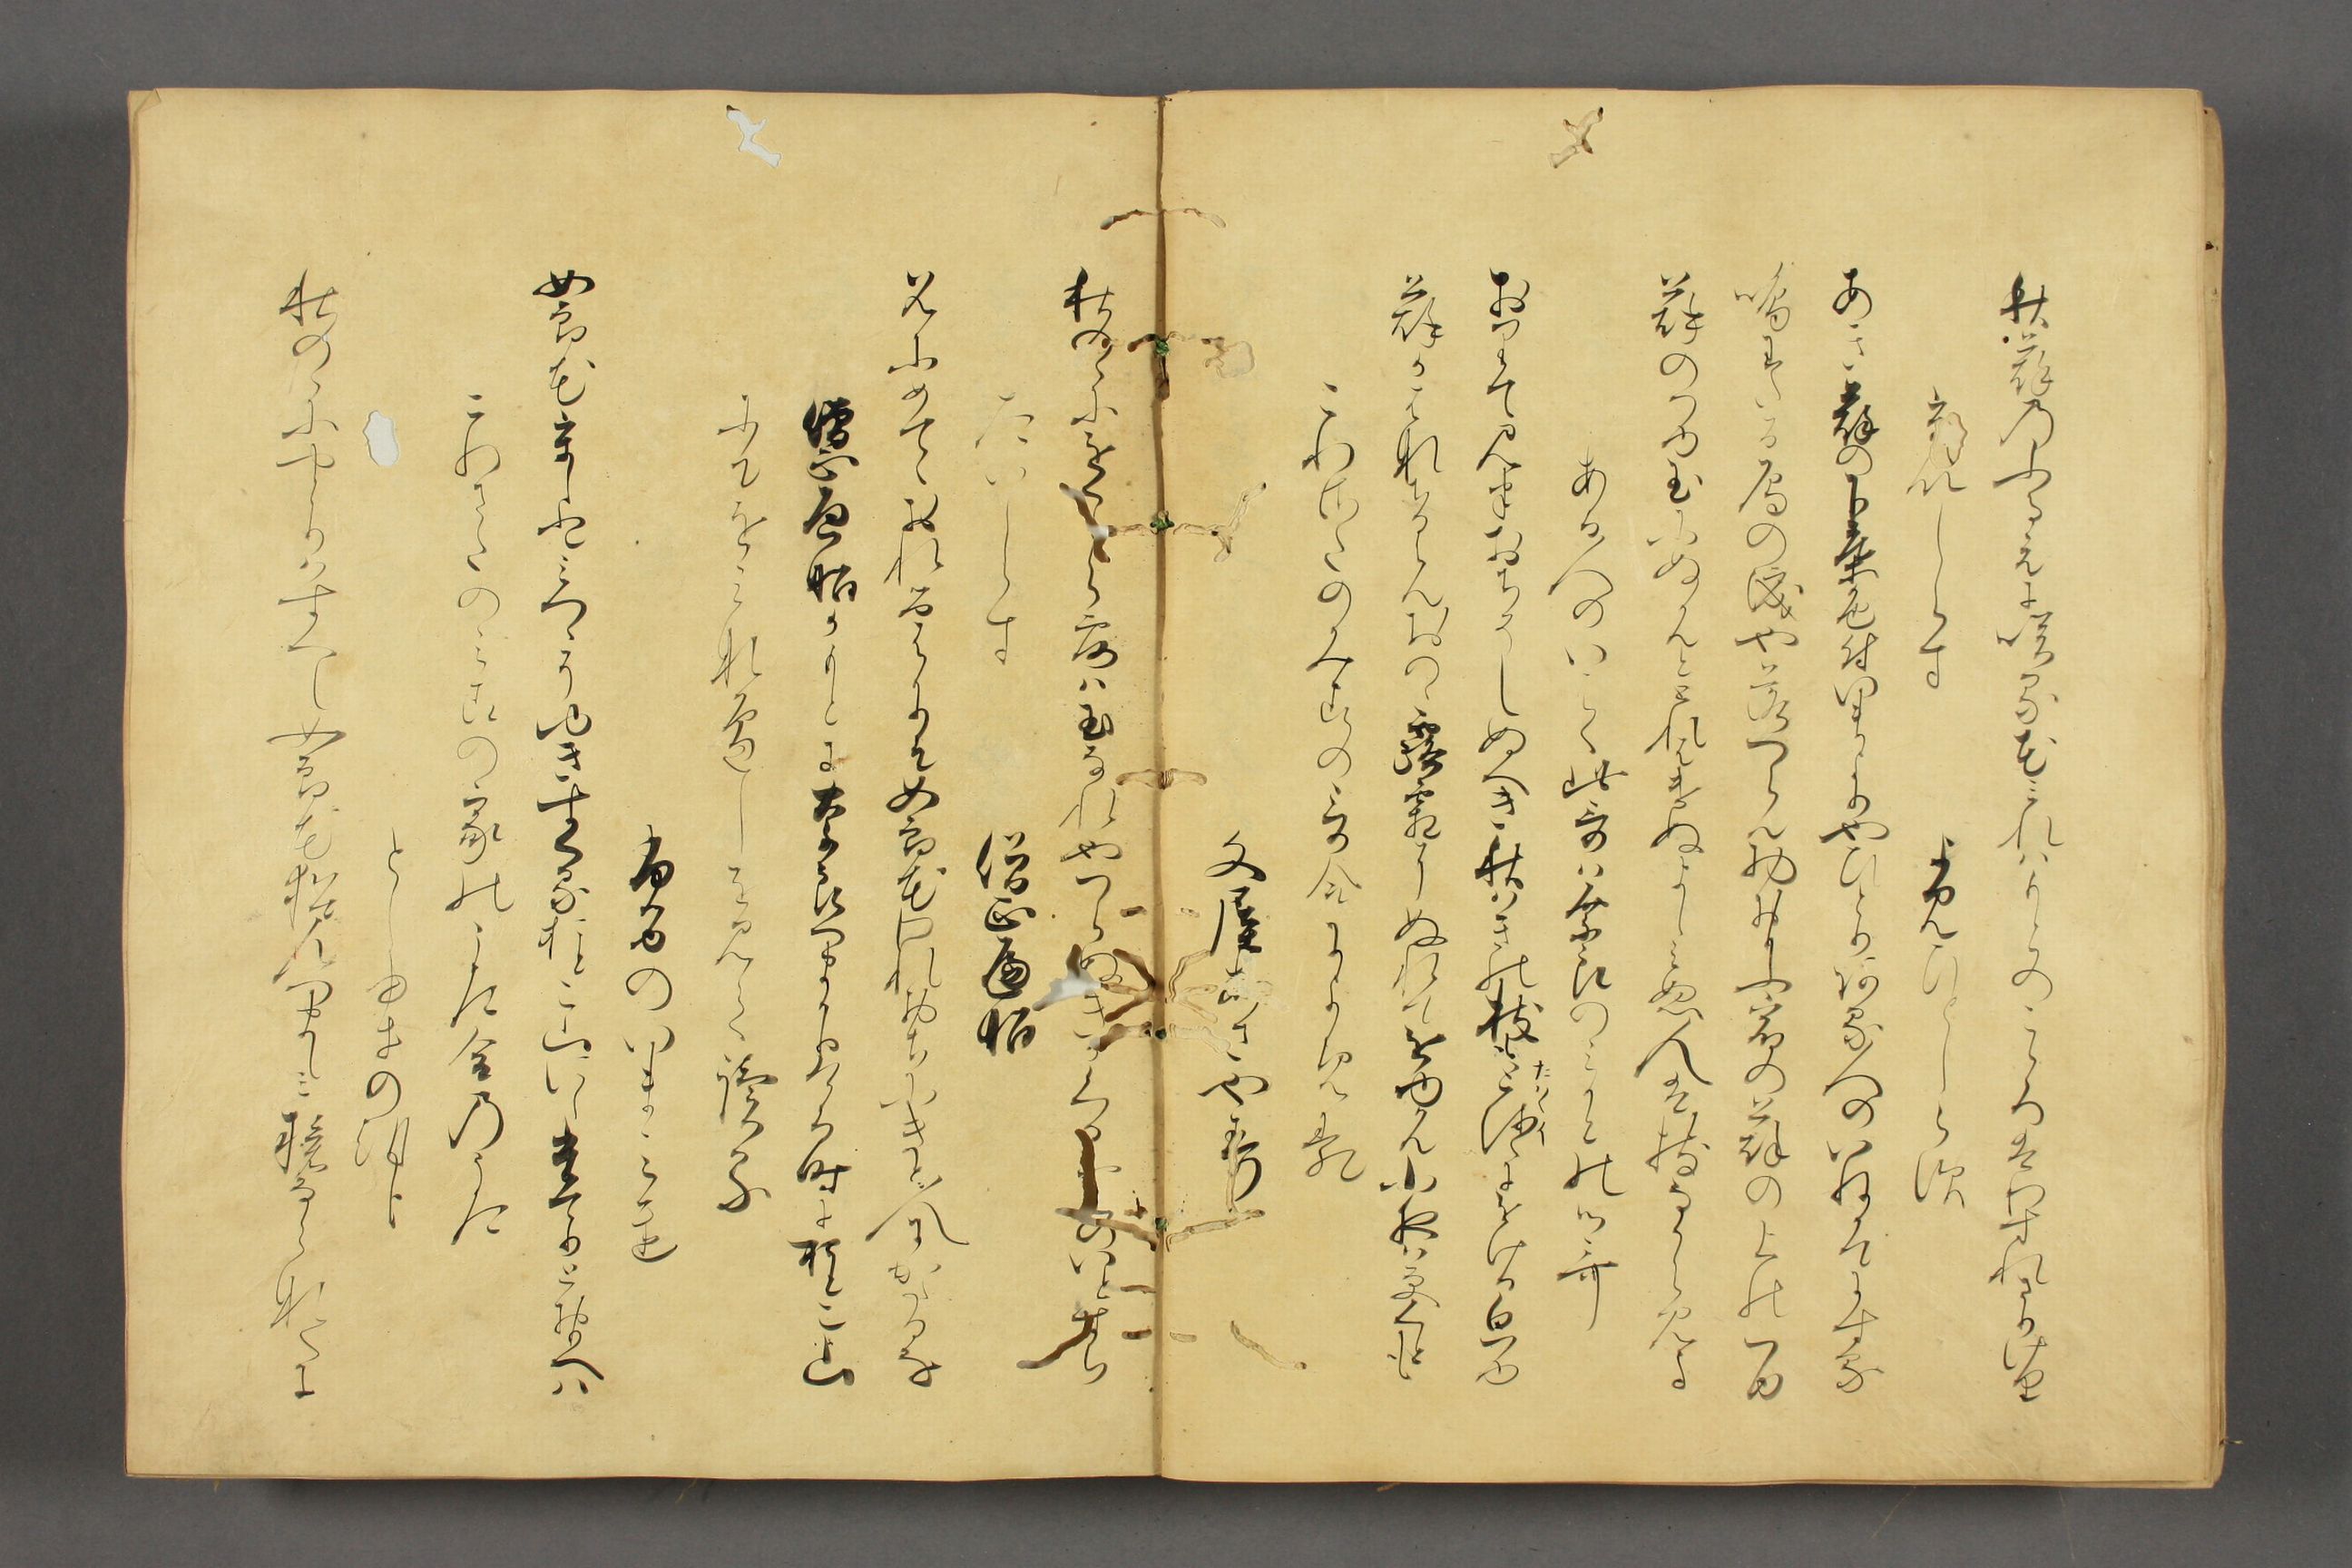 秋萩のふるえに咲る花みれはもとのこゝろはわすれさりけり
題しらす
よみ人しらす
あき萩の下葉色付いまよりやひとりある人のいねかてにする
鳴わたる鴈の涙や落つらん物おもふ宿の萩の上の露
萩のつゆ玉にぬかんととれはけぬよしみむ人は枝なからみよ
ある人のいはく此哥はならのみかとの御哥
おりてみはおちそしぬへき秋はきの枝もたわゝにをける白露
萩か花ちるらんおのゝ露霜にぬれてをゆかん小夜は更くとも
これさたのみこの哥合によみ
文屋あさやす
秋のゝにをくしら露は玉なれやつらぬきかくるくものいとすち
たいしらす
僧正遍昭
名にめてゝおれるはかりそ女郎花われおちにきと人にかたるな
僧正遍昭かもとにならへまかりける時に男こ山
にてをみなへしをみて読る
ふるのいまみち
女郎花うしとみつゝそゆきすくる男こ山にしたてりとおもへは
これさたのみこの家のうた合のうた
としゆきの朝臣
秋のゝにやとりはすへし女郎花名をむつましみ旅ならなくに